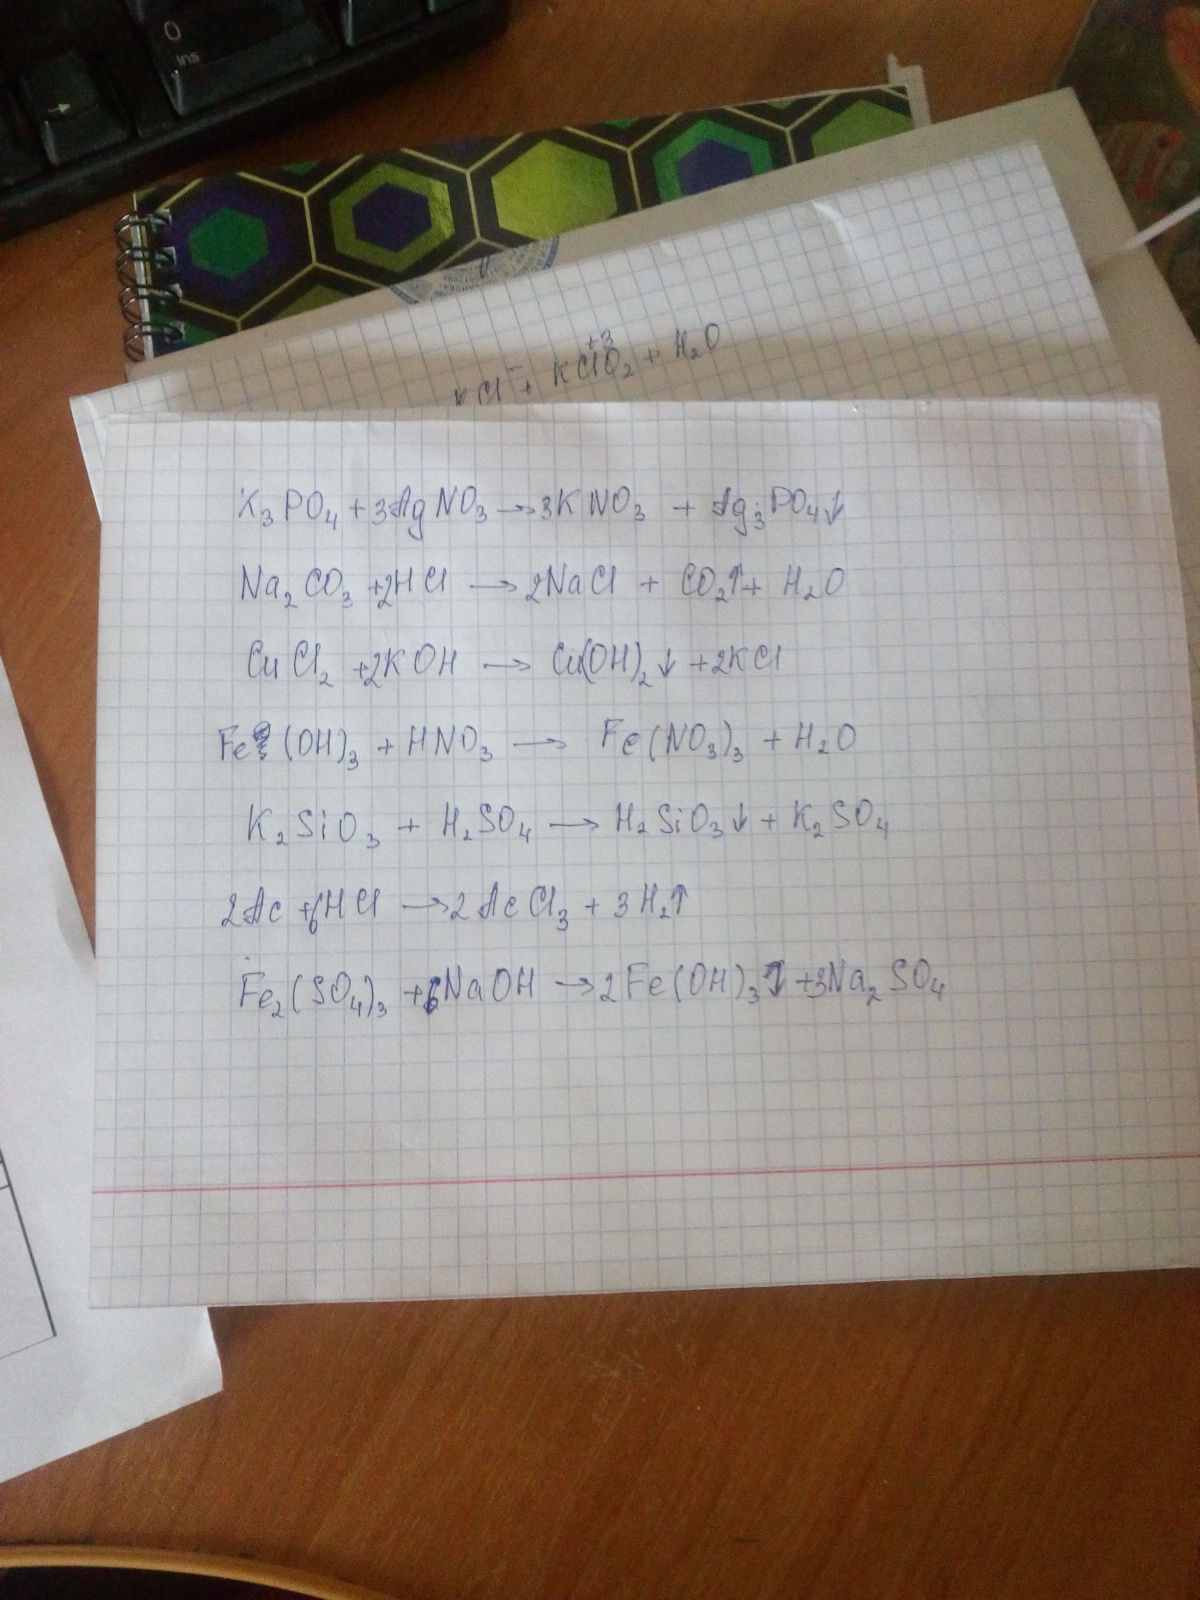 0
ins
KCl⁻ + KCl⁺³O₂ + H₂O
K₃PO₄ + 3AgNO₃ → 3KNO₃ + Ag₃PO₄↓
Na₂CO₃ + 2HCl → 2NaCl + CO₂↑ + H₂O
CuCl₂ + 2KOH → Cu(OH)₂↓ + 2KCl
Fe(OH)₃ + HNO₃ → Fe(NO₃)₃ + H₂O
K₂SiO₃ + H₂SO₄ → H₂SiO₃↓ + K₂SO₄
2Ac + 6HCl → 2AcCl₃ + 3H₂↑
Fe₂(SO₄)₃ + 6NaOH → 2Fe(OH)₃↓ + 3Na₂SO₄